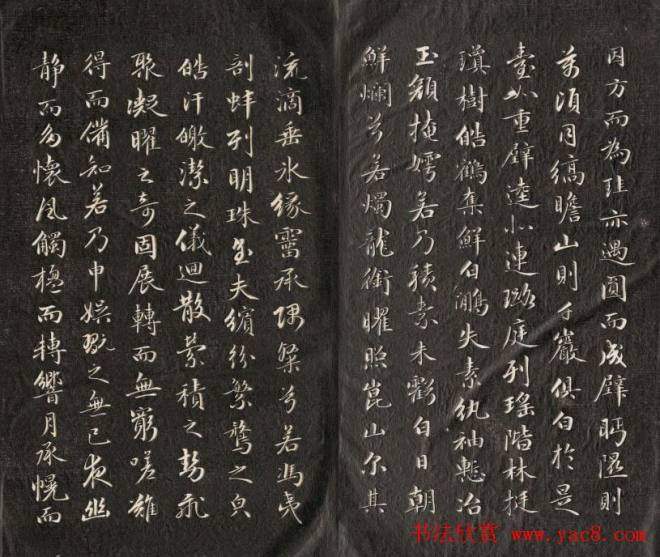 因方而為珪亦遇圓而成璧眄隰則
萬頃同縞瞻山則千巖俱白於是
臺如重璧逵似連璐庭列瑤階林挺
瓊樹皓鶴奪鮮白鷳失素紈袖慙冶
玉顏掩嫮若乃積素未虧白日朝
鮮爛兮若燭龍銜曜照崑山尒其
流滴垂氷緣霤承隅粲兮若馮夷
剖蚌列明珠至夫繽紛繁騖之皃
皓汗皦潔之儀迴散縈積之勢飛
聚凝曜之奇固展轉而無窮嗟難
得而備知若乃申娛翫之無已夜幽
静而多懷風觸楹而轉響月承幌而
书法欣赏 www.yac8.com